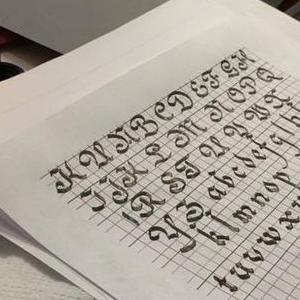 A B C D E F G H
I J K L M N O P Q
R S T U V W X
Y Z a b c d e f g h i j
k l m n o p
t u v w x